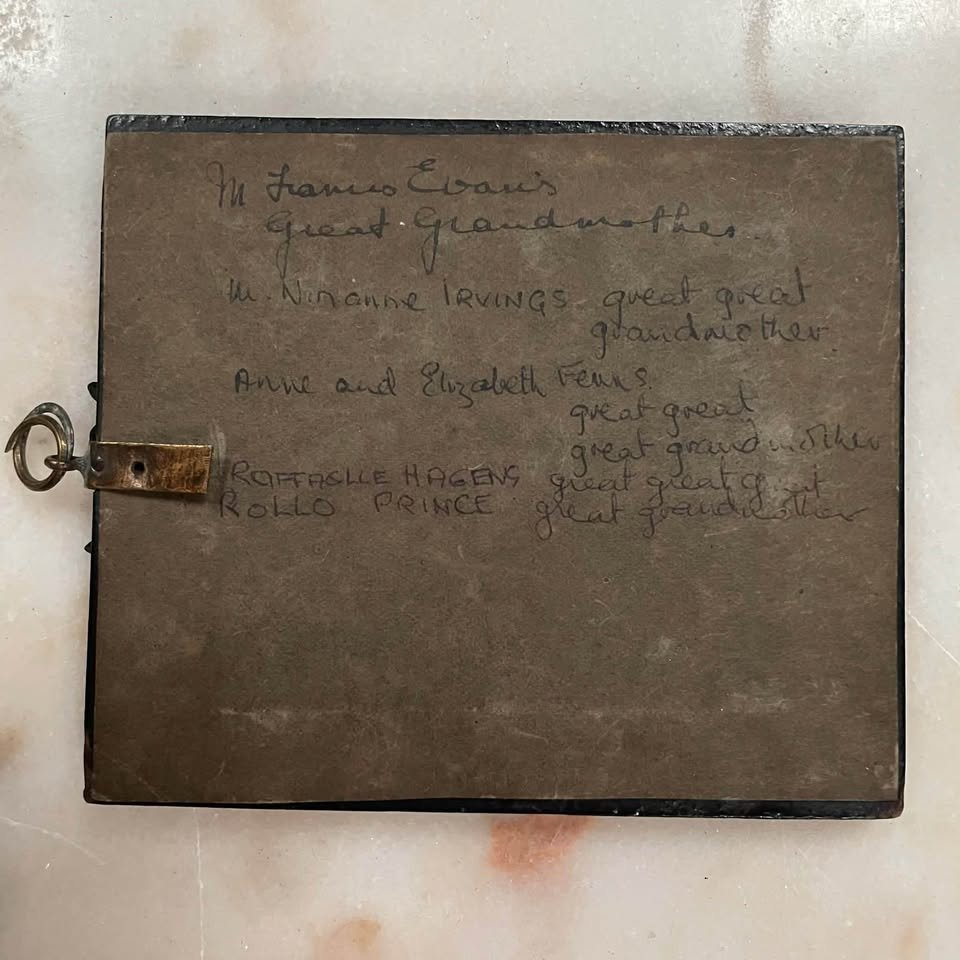 M Francis Evan's
Great Grandmother
M. Ninanne IRVINGS great great
grandmother
Anne and Elizabeth Fenns.
great great
great grandmother
RAFFAELLE HAGENS great great great
ROLLO PRINCE great grandmother